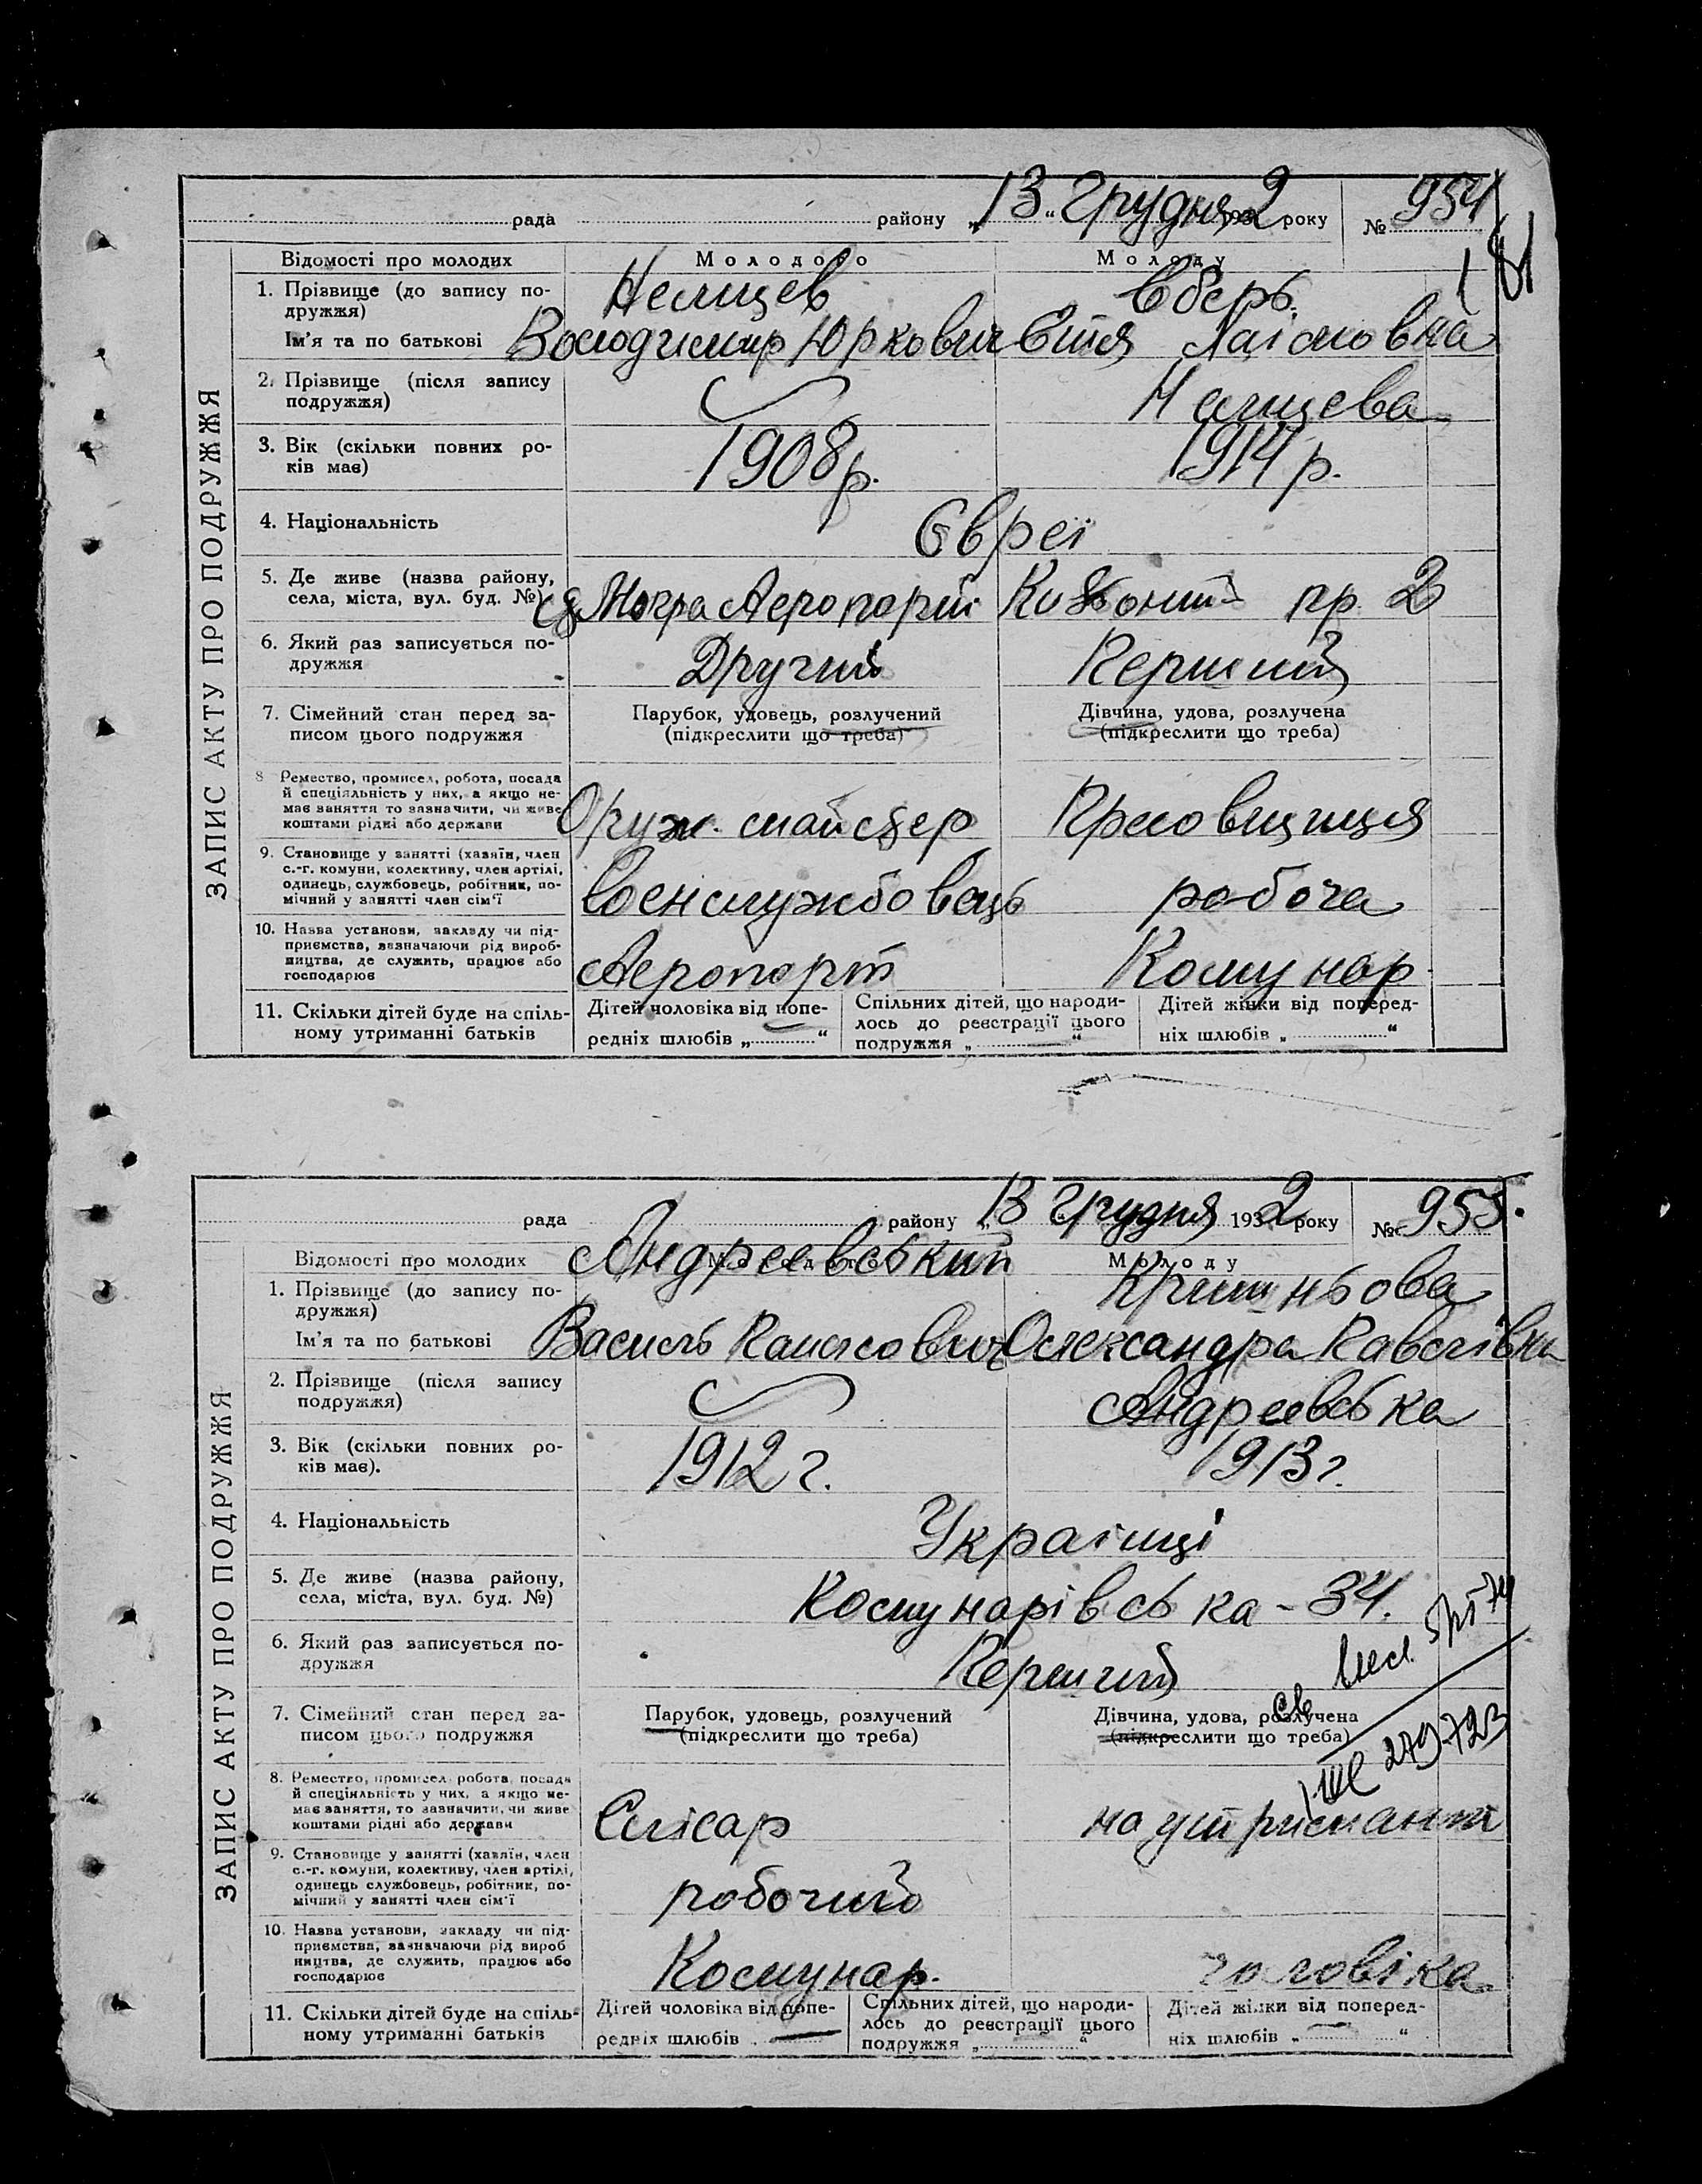 рада району „13“ Грудня 1932 року № 954
181
ЗАПИС АКТУ ПРО ПОДРУЖЖЯ
Відомості про молодих Молодого Молоду
1. Прізвище (до запису по-
дружжя)
Ім'я та по батькові Володимир Юркович
2. Прізвище (після запису
подружжя)
3. Вік (скільки повних ро-
ків має) 1908 р. 1914 р.
4. Національність Євреї
5. Де живе (назва району,
села, міста, вул. буд. №) Аеропорт пр 2
6. Який раз записується по-
дружжя Другий Перший
7. Сімейний стан перед за-
писом цього подружжя
Парубок, удовець, розлучений
(підкреслити що треба)
Дівчина, удова, розлучена
(підкреслити що треба)
8 Ремество, промисел, робота, посада
й спеціяльність у них, а якщо не-
має заняття то зазначити, чи живе
коштами рідні або держави
Оруж. майстер Пресовщиця
9. Становище у занятті (хазяїн, член
с.-г. комуни, колективу, член артілі,
одинець, службовець, робітник, по-
мічний у занятті член сім'ї
Воєнслужбовець робоча
10. Назва установи, закладу чи під-
приємства, зазначаючи рід вироб-
ництва, де служить, працює або
господарює
Аеропорт Комунар
11. Скільки дітей буде на спіль-
ному утриманні батьків
Дітей чоловіка від попе-
редніх шлюбів „ “
Спільних дітей, що народи-
лось до реєстрації цього
подружжя „ “
Дітей жінки від поперед-
ніх шлюбів „ “
рада району „13“ Грудня 1932 року № 955.
ЗАПИС АКТУ ПРО ПОДРУЖЖЯ
Відомості про молодих Молодого Молоду
1. Прізвище (до запису по-
дружжя)
Андреевський
Ім'я та по батькові Василь Олександра Павлівна
2. Прізвище (після запису
подружжя) Андреевська
3. Вік (скільки повних ро-
ків має). 1912 г. 1913 г.
4. Національність Українці
5. Де живе (назва району,
села, міста, вул. буд. №) Комунарівська - 34.
6. Який раз записується по-
дружжя Перший
7. Сімейний стан перед за-
писом цього подружжя
Парубок, удовець, розлучений
(підкреслити що треба)
Дівчина, удова, розлучена
(підкреслити що треба)
279723
8. Ремество, промисел, робота, посада
й спеціяльність у них, а якщо не-
має заняття, то зазначити, чи живе
коштами рідні або держави
Слісар на утриманні
9. Становище у занятті (хазяїн, член
с.-г. комуни, колективу, член артілі,
одинець службовець, робітник, по-
мічний у занятті член сім'ї
робочий
10. Назва установи, закладу чи під-
приємства, зазначаючи рід вироб
ництва, де служить, працює або
господарює
Комунар. чоловіка
11. Скільки дітей буде на спіль-
ному утриманні батьків
Дітей чоловіка від попе-
редніх шлюбів
Спільних дітей, що народи-
лось до реєстрації цього
подружжя „ “
Дітей жінки від поперед-
ніх шлюбів „ “